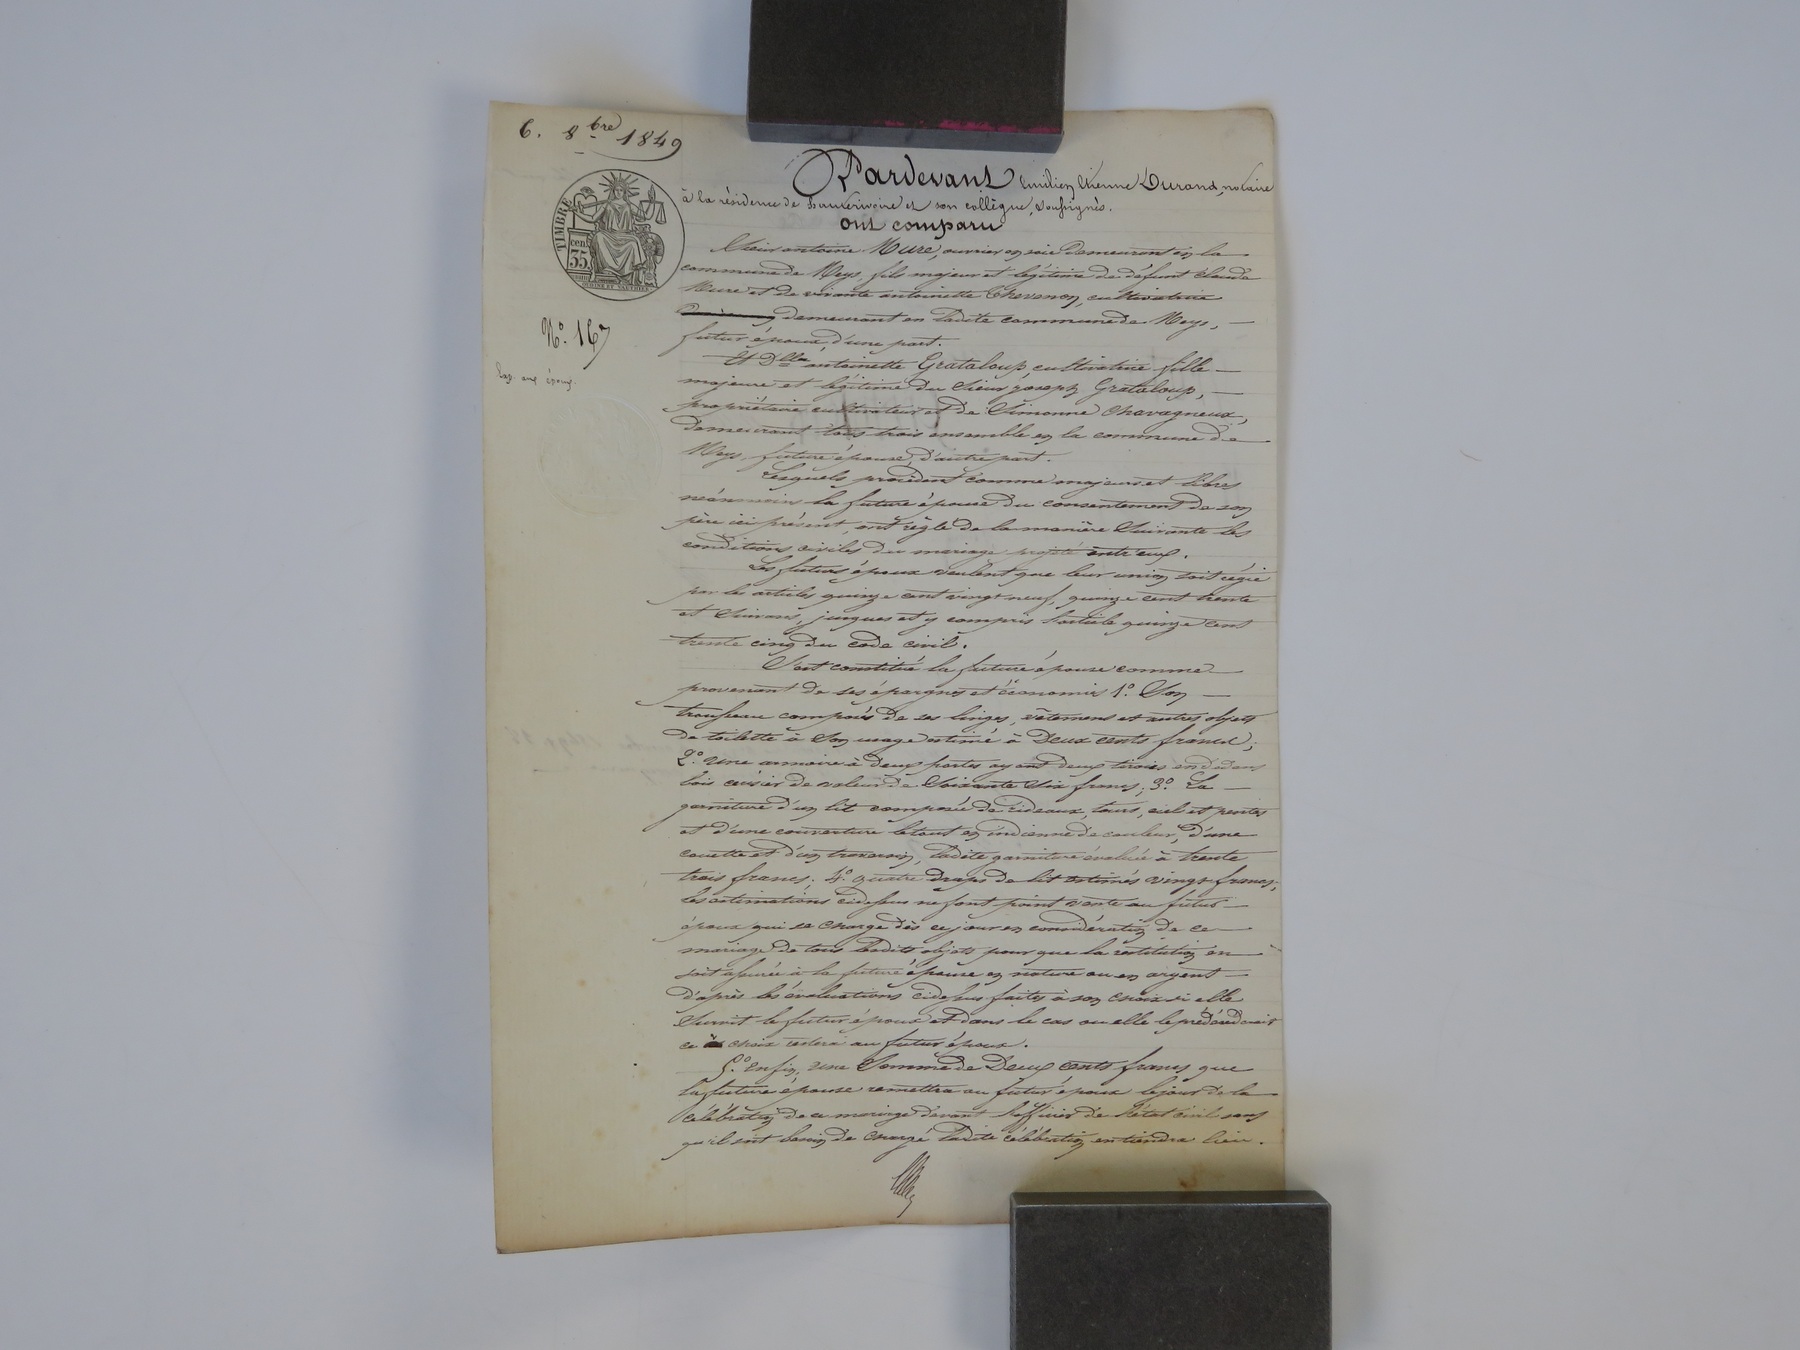 6. 8bre 1849
TIMBRE
cent.
35
Nº. 167
Exp. aux époux.
Pardevant Emilien Etienne Durand, notaire
à la résidence de hauterivoire et son collègue, soussignés.
Ont comparu
Sieur antoine Mure, ouvrier en soie demeurant en la
commune de Meys, fils majeur et légitime de défunt Claude
Mure et de vivante antoinette Chevenon, cultivatrice
demeurant en ladite commune de Meys, —
futur époux, d'une part.
Et Dlle antoinette Grataloup, cultivatrice fille —
majeure et légitime du Sieur joseph Grataloup, —
propriétaire cultivateur et de Simonne Chavagneux,
demeurant tous trois ensemble en la commune de
Meys, future épouse, d'autre part.
Lesquels procédant comme majeurs et libres
néanmoins la future épouse du consentement de son
père ici présent, ont réglé de la manière Suivante les
conditions civiles du mariage projeté entr'eux.
Les futurs époux veulent que leur union soit régie
par les articles quinze cent vingt neuf, quinze cent trente
et Suivans, jusques et y compris l'article quinze cent
trente cinq du code civil.
Soit constitué la future épouse comme
provenant de ses épargnes et économies 1º. Son —
trousseau composé de ses linges, vêtemens et autres objets
de toilette à Son usage estimé à Deux cents francs;
2º. Une armoire à deux portes ayant deux tiroirs en dedans
bois cerisier de valeur de Soixante Six francs; 3º. La —
garniture d'un lit composée de rideaux, tours, ciel et pentes
et d'une couverture le tout en indienne de couleur, d'une
couette et d'un traversin, ladite garniture évaluée à trente
trois francs. 4º. quatre draps de lit estimés vingt francs;
les estimations cidessus ne font point vente au futur —
époux qui se charge dès ce jour en considération de ce —
mariage de tous lesdits objets pour que la restitution en —
soit assurée à la future épouse en nature ou en argent —
d'après les évaluations cidessus faites à son choix si elle
Survit le futur époux et dans le cas ou elle le prédécéderait
ce choix restera au futur époux.
5º. Enfin, Une Somme de Deux cents francs que
la future épouse remettra au futur époux le jour de la
célébration de ce mariage devant l'officier de l'état civil sans
qu'il soit besoin de charge ladite célébration en tiendra lieu.